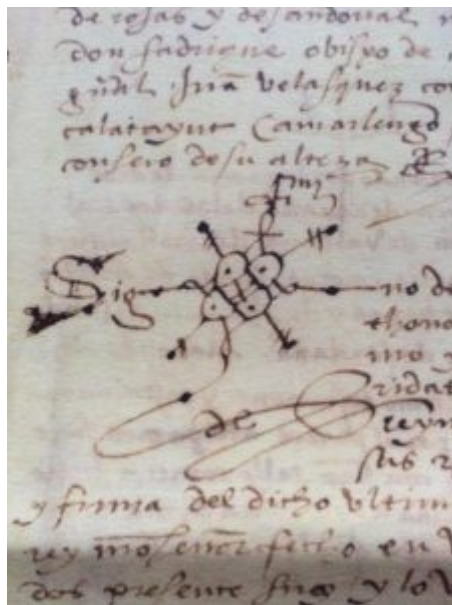 de rojas y de sandoval
don fadrique obispo de
gīdil Juā velasquez con
calatayut Camarlengo
consejo de su alteza
Sig no de
thono
mo y
ridat
de reyn
sus r
y firma del dicho ultim
rey mo señor fecho en v
dos presente fuy y lo v